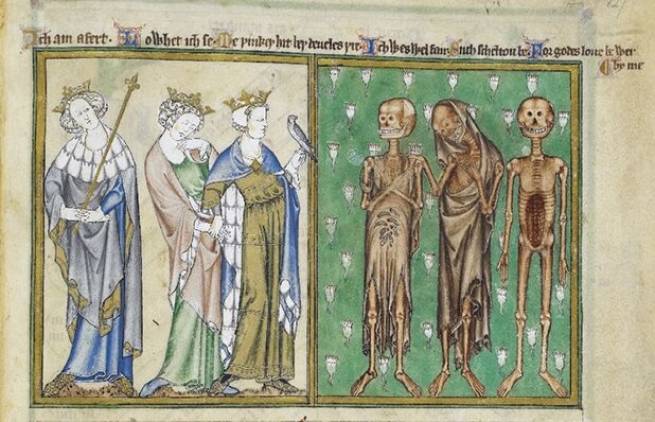 Ich am afert. Lo whet ich se. Me þinkeþ hit beþ deueles þre. Ich wes wel fair. Such scheltou be. For godes loue be wer
by me